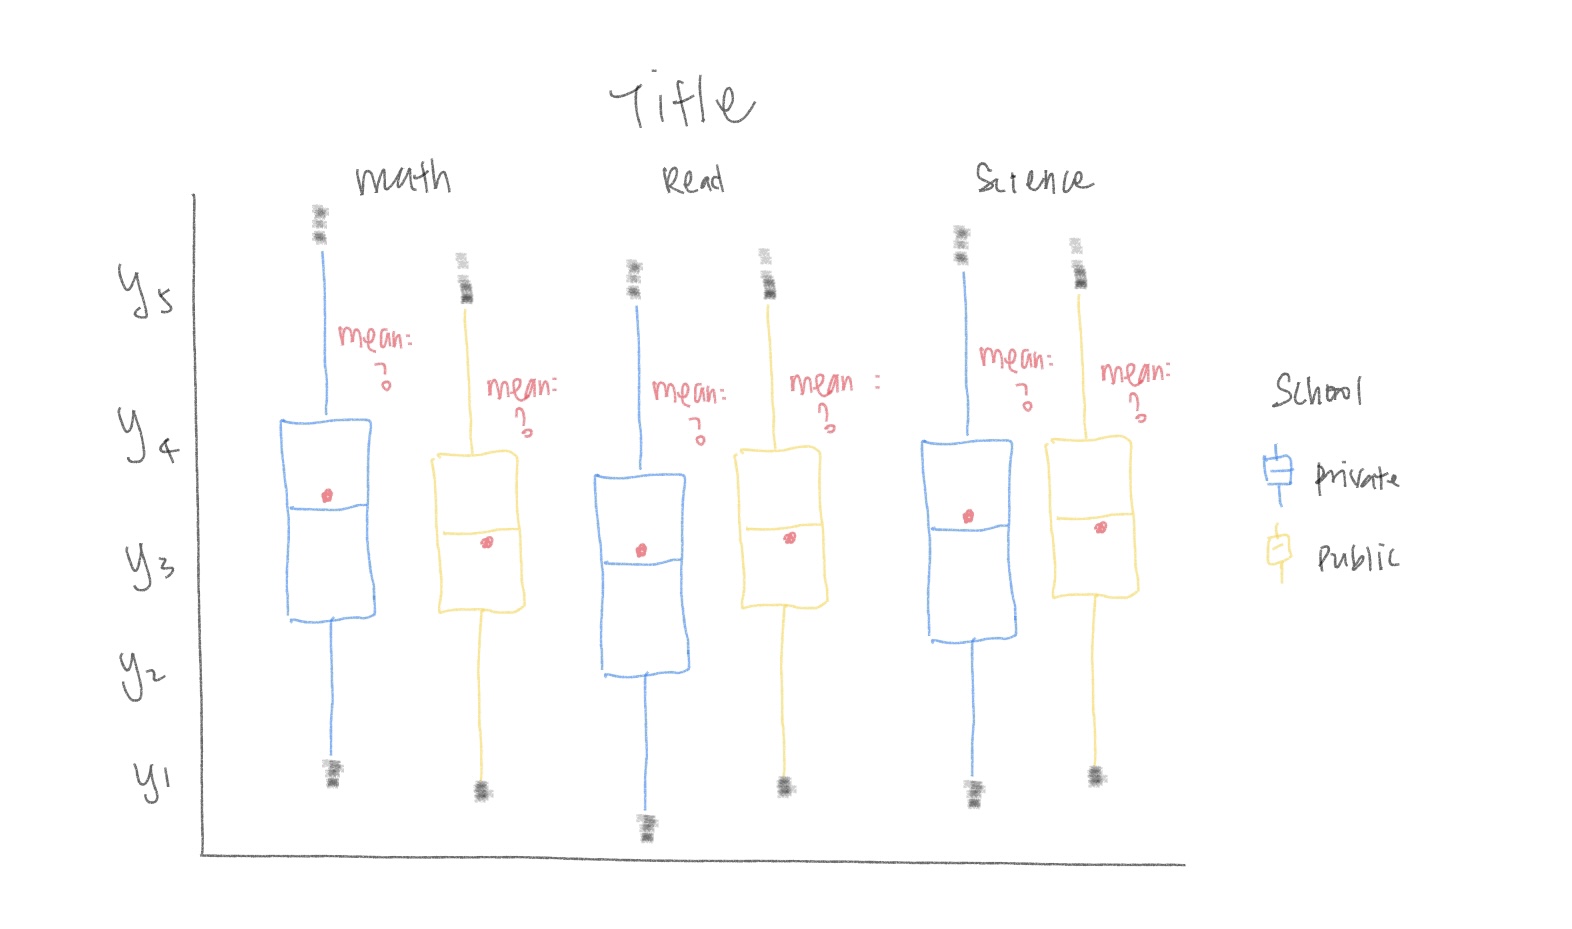 Title
Math
Read
Science
y5
y4
y3
y2
y1
mean:
?
mean:
?
mean:
?
mean :
?
mean:
?
mean:
?
School
private
Public